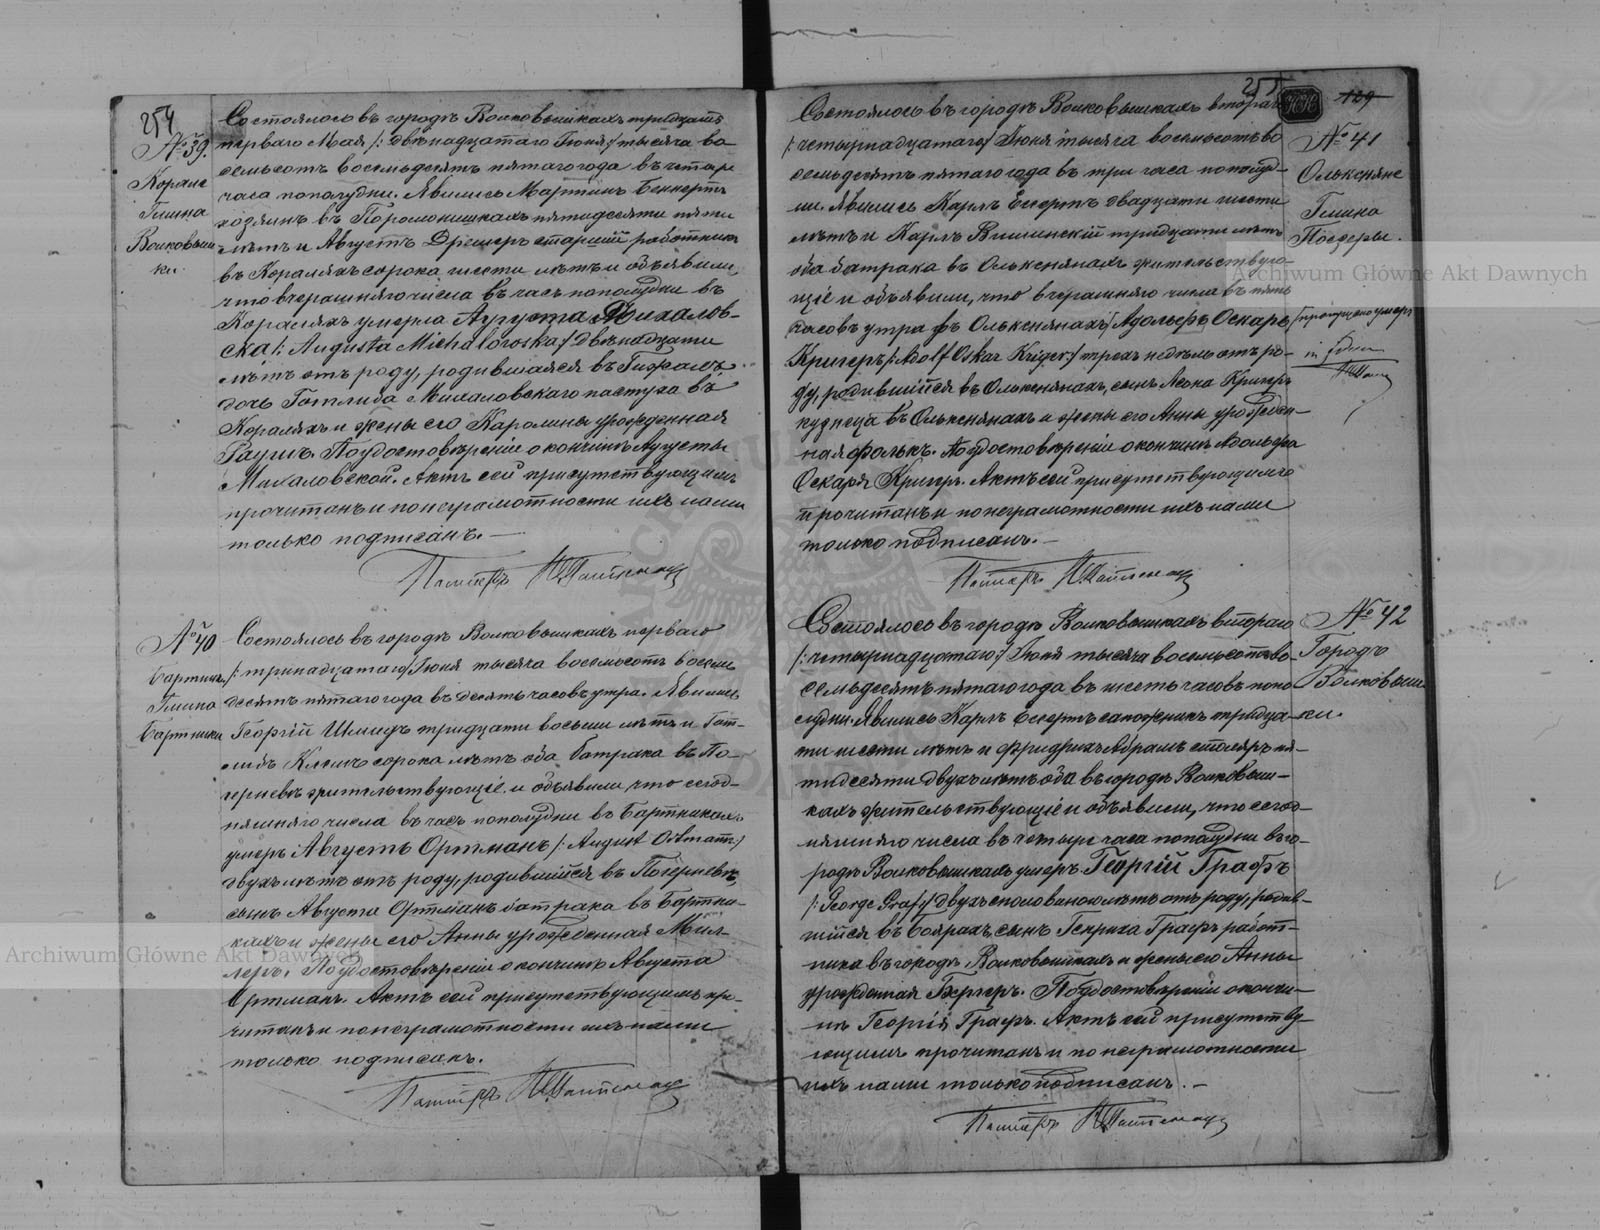 254
№ 39.
Корале
Гмина
Волковыш
ки.
Состоялось въ городѣ Волковышкахъ тридцать
перваго Мая /: двѣнадцатаго Іюня :/ тысяча во
семьсотъ восемьдесятъ пятаго года въ четыре
часа пополудни. Явились Мартинъ
хозяинъ въ пятидесяти пяти
лѣтъ и Августъ Дрешеръ старшій работникъ
въ Кораляхъ сорока шести лѣтъ и объявили,
что вчерашняго числа въ часъ пополудни въ
Кораляхъ умерла Августа Михалов-
ска /: Augusta Michalowska :/ двѣнадцати
лѣтъ отъ роду, родившаяся въ
дочь Готлиба Михаловскаго пастуха въ
Кораляхъ и жены его Каролины урожденная
Раушъ. По удостовѣреніи о кончинѣ Августы
Михаловской. Актъ сей присутствующимъ
прочитанъ и по неграмотности ихъ нами
только подписанъ. —
Пасторъ
№ 40
Бартник.
Гмина
Бартники
Состоялось въ городѣ Волковышкахъ перваго
/: тринадцатаго :/ Іюня тысяча восемьсотъ восемь
десятъ пятаго года въ десять часовъ утра. Явились
Георгій Шмидъ тридцати восьми лѣтъ и Гот-
либъ сорока лѣтъ оба батрака въ По-
герневѣ жительствующіе и объявили, что сегод-
няшняго числа въ часъ пополудни въ Бартникахъ
умеръ Августъ Ортманъ /: August Ortmann :/
двухъ лѣтъ отъ роду, родившійся въ Погерневѣ,
сынъ Августа Ортманъ батрака въ Бартни-
кахъ и жены его Анны урожденная Мил-
леръ. По удостовѣреніи о кончинѣ Августа
Ортманъ. Актъ сей присутствующимъ про-
читанъ и по неграмотности ихъ нами
только подписанъ.
Пасторъ
255
129
№ 41
Олькеняне
Гмина
Посдеры.
Состоялось въ городѣ Волковышкахъ втораго
/: четырнадцатаго :/ Іюня тысяча восемьсотъ во
семьдесятъ пятаго года въ три часа пополуд-
ни. Явились Карлъ Екертъ двадцати шести
лѣтъ и Карлъ Вишинскій тридцати лѣтъ
оба батрака въ Олькенянахъ жительствую-
щіе и объявили, что вчерашняго числа въ пять
часовъ утра въ Олькенянахъ / Адольфъ Оскаръ
Кригеръ /: Adolf Oskar Kriger :/ трехъ недѣль отъ ро-
ду, родившійся въ Олькенянахъ, сынъ Леона Кригеръ
кузнеца въ Олькенянахъ и жены его Анны урожден-
ная Фолькъ. По удостовѣреніи о кончинѣ Адольфа
Оскара Кригеръ. Актъ сей присутствующимъ
прочитанъ и по неграмотности ихъ нами
только подписанъ. —
/ пропущено умеръ
Пасторъ
№ 42
Городъ
Волковыш
ки.
Состоялось въ городѣ Волковышкахъ втораго
/: четырнадцатаго :/ Іюня тысяча восемьсотъ во-
семьдесятъ пятаго года въ шесть часовъ попо
лудни. Явились Карлъ Екертъ сапожникъ тридца-
ти шести лѣтъ и Фридрихъ Абрамъ столяръ пя-
тидесяти двухъ лѣтъ оба въ городѣ Волковыш-
кахъ жительствующіе и объявили, что сегод-
няшняго числа въ четыре часа пополудни въ го-
родѣ Волковышкахъ умеръ Георгій Графъ
/: George Graf :/ двухъ съ половиною лѣтъ отъ роду, родив-
шійся въ Боярахъ, сынъ Генриха Графъ работ-
ника въ городѣ Волковышкахъ и жены его Анны
урожденная Бергеръ. По удостовѣреніи о кончи-
нѣ Георгія Графъ. Актъ сей присутству-
ющимъ прочитанъ и по неграмотности
ихъ нами только подписанъ. —
Пасторъ
Archiwum Główne Akt Dawnych
Archiwum Główne Akt Dawnych